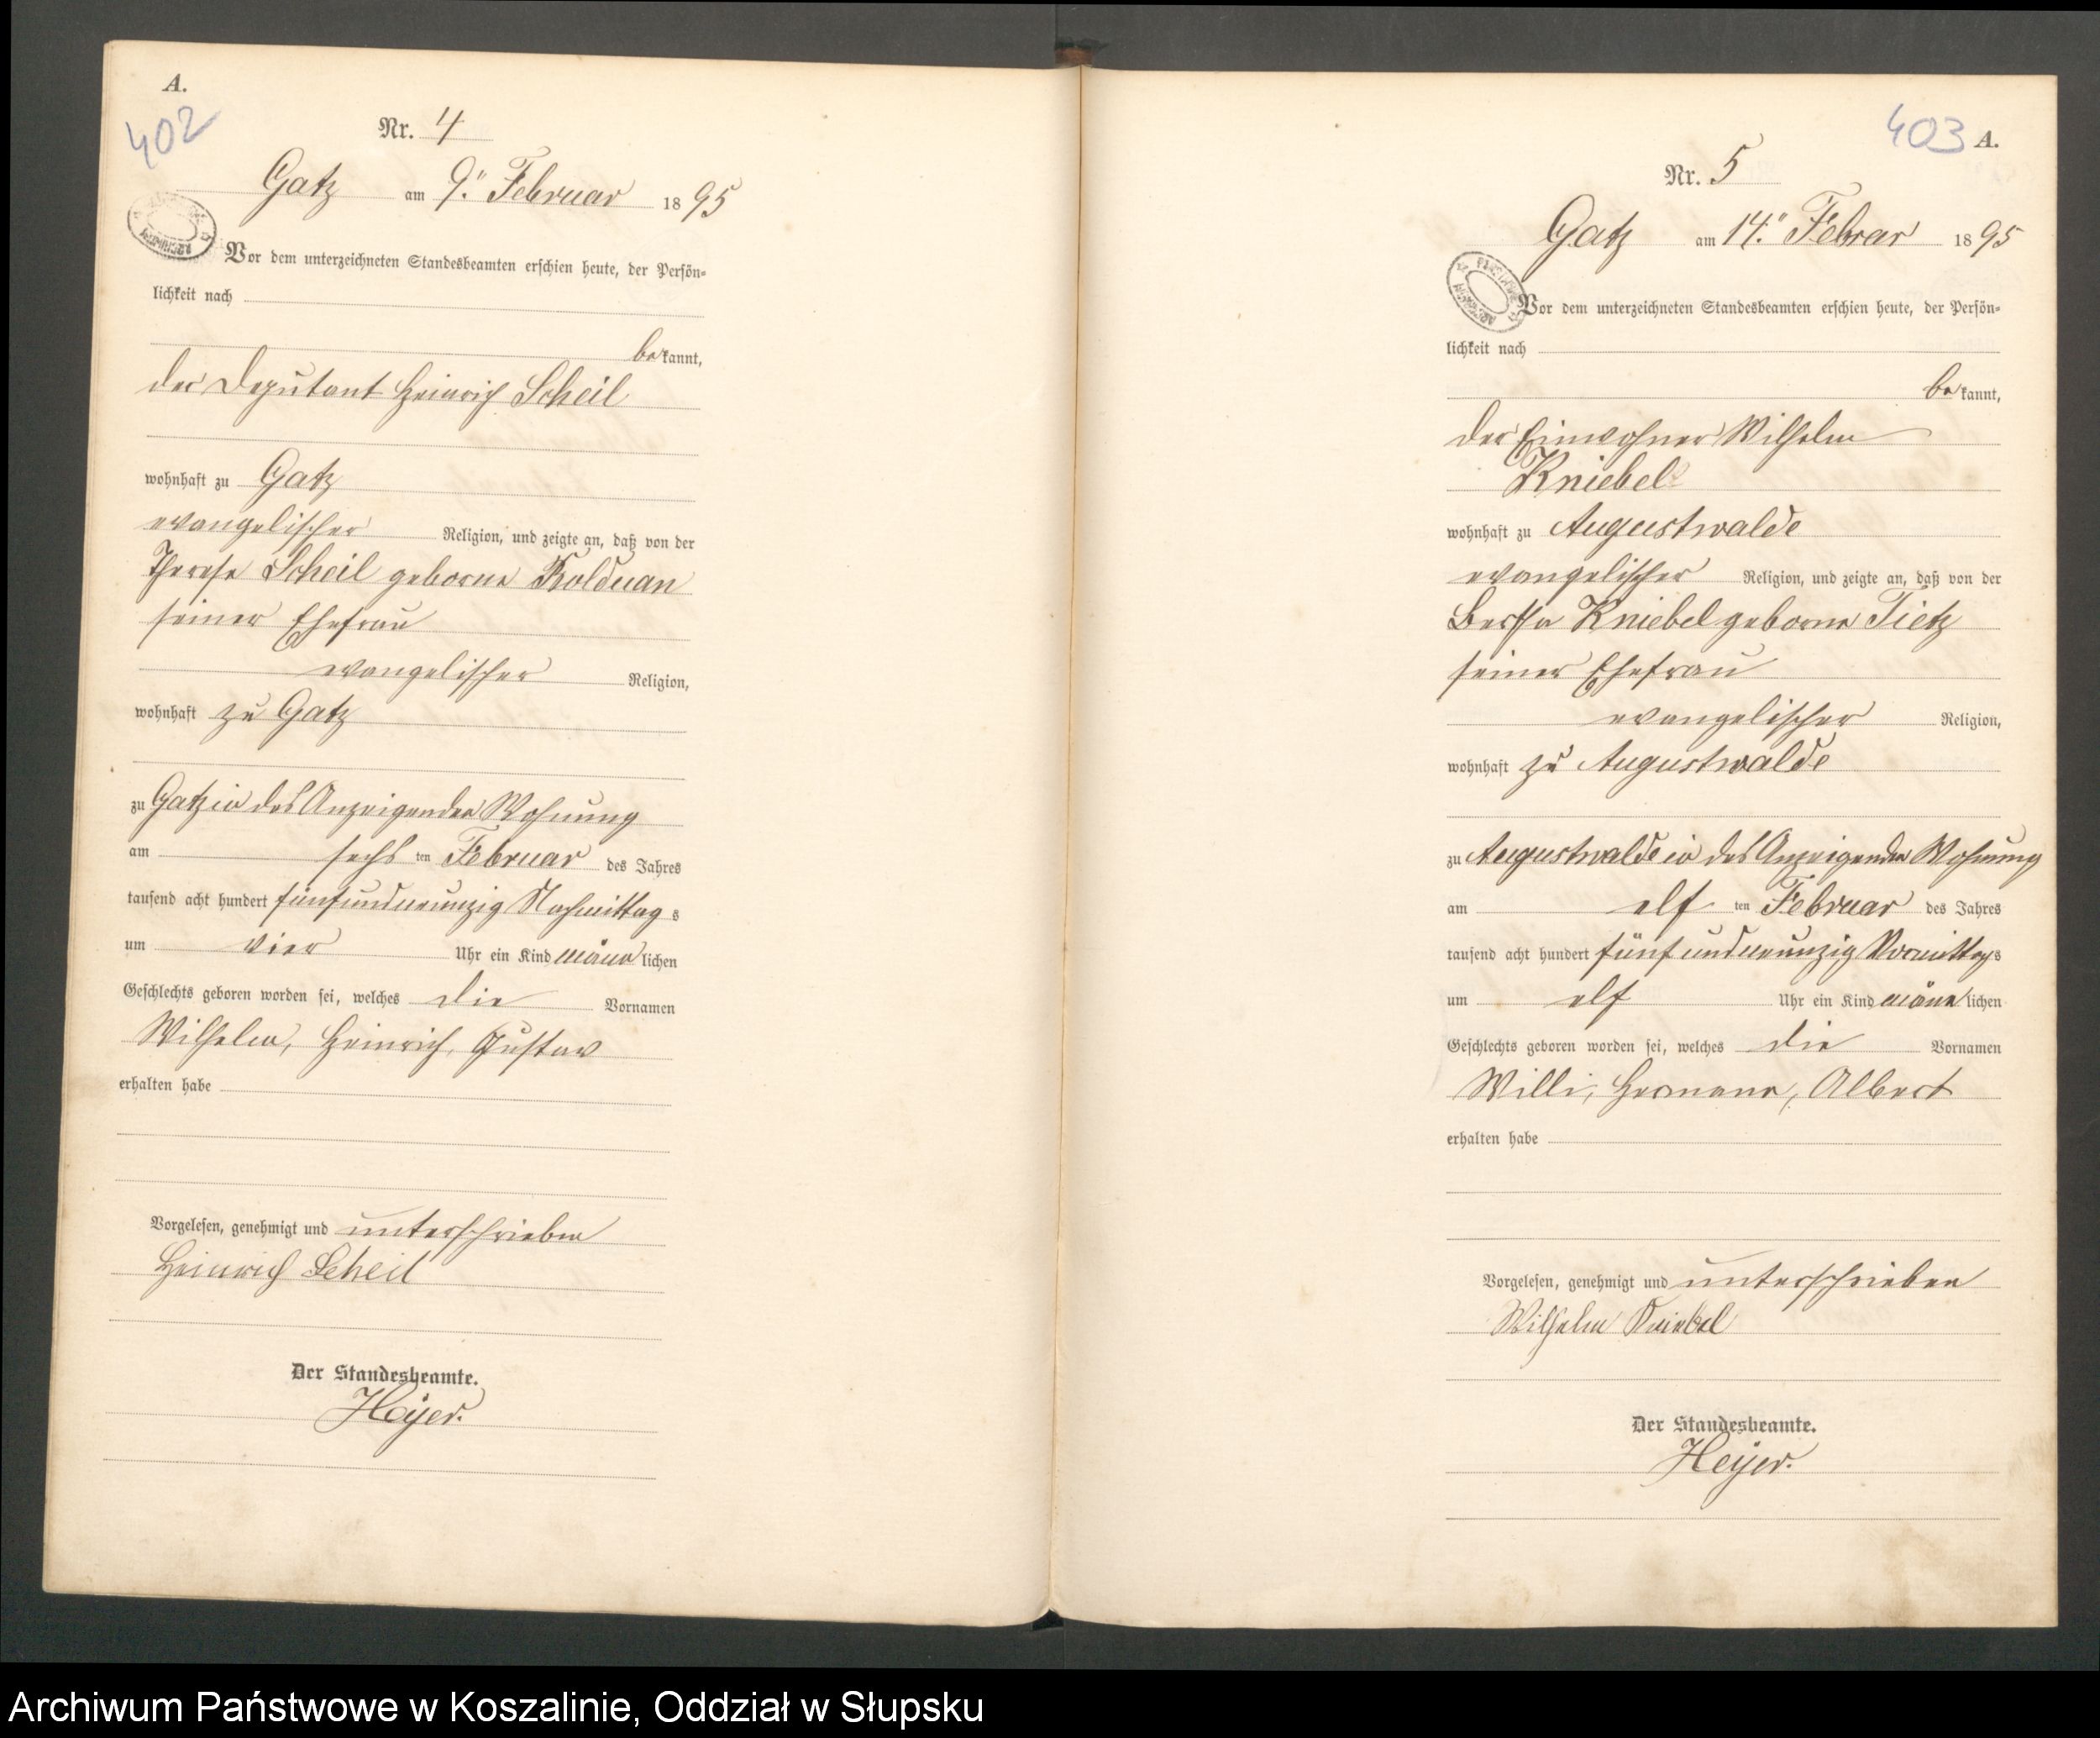 A.
402
Nr. 4
Gatz am 9.ᵗ Februar 1895
Vor dem unterzeichneten Standesbeamten erschien heute, der Persön-
lichkeit nach
bekannt,
der Deputant Heinrich Scheil
wohnhaft zu Gatz
evangelischer Religion, und zeigte an, daß von der
Therese Scheil geborne Kolduan
seiner Ehefrau
evangelischer Religion,
wohnhaft zu Gatz
zu Gatz in des Anzeigenden Wohnung
am sechs ten Februar des Jahres
tausend acht hundert fünfundneunzig Nachmittags
um vier Uhr ein Kind männlichen
Geschlechts geboren worden sei, welches die Vornamen
Wilhelm, Heinrich, Gustav
erhalten habe
Vorgelesen, genehmigt und unterschrieben
Heinrich Scheil
Der Standesbeamte.
Heyer.
403 A.
Nr. 5
Gatz am 14.ᵗ Febrar 1895
Vor dem unterzeichneten Standesbeamten erschien heute, der Persön-
lichkeit nach
bekannt,
der Einwohner Wilhelm
Kniebel
wohnhaft zu Augustwalde
evangelischer Religion, und zeigte an, daß von der
Bertha Kniebel geborne Tietz
seiner Ehefrau
evangelischer Religion,
wohnhaft zu Augustwalde
zu Augustwalde in des Anzeigenden Wohnung
am elf ten Februar des Jahres
tausend acht hundert fünfundneunzig Vormittags
um elf Uhr ein Kind männlichen
Geschlechts geboren worden sei, welches die Vornamen
Willi, Hermann, Albert
erhalten habe
Vorgelesen, genehmigt und unterschrieben
Wilhelm Kniebel
Der Standesbeamte.
Heyer.
Archiwum Państwowe w Koszalinie, Oddział w Słupsku